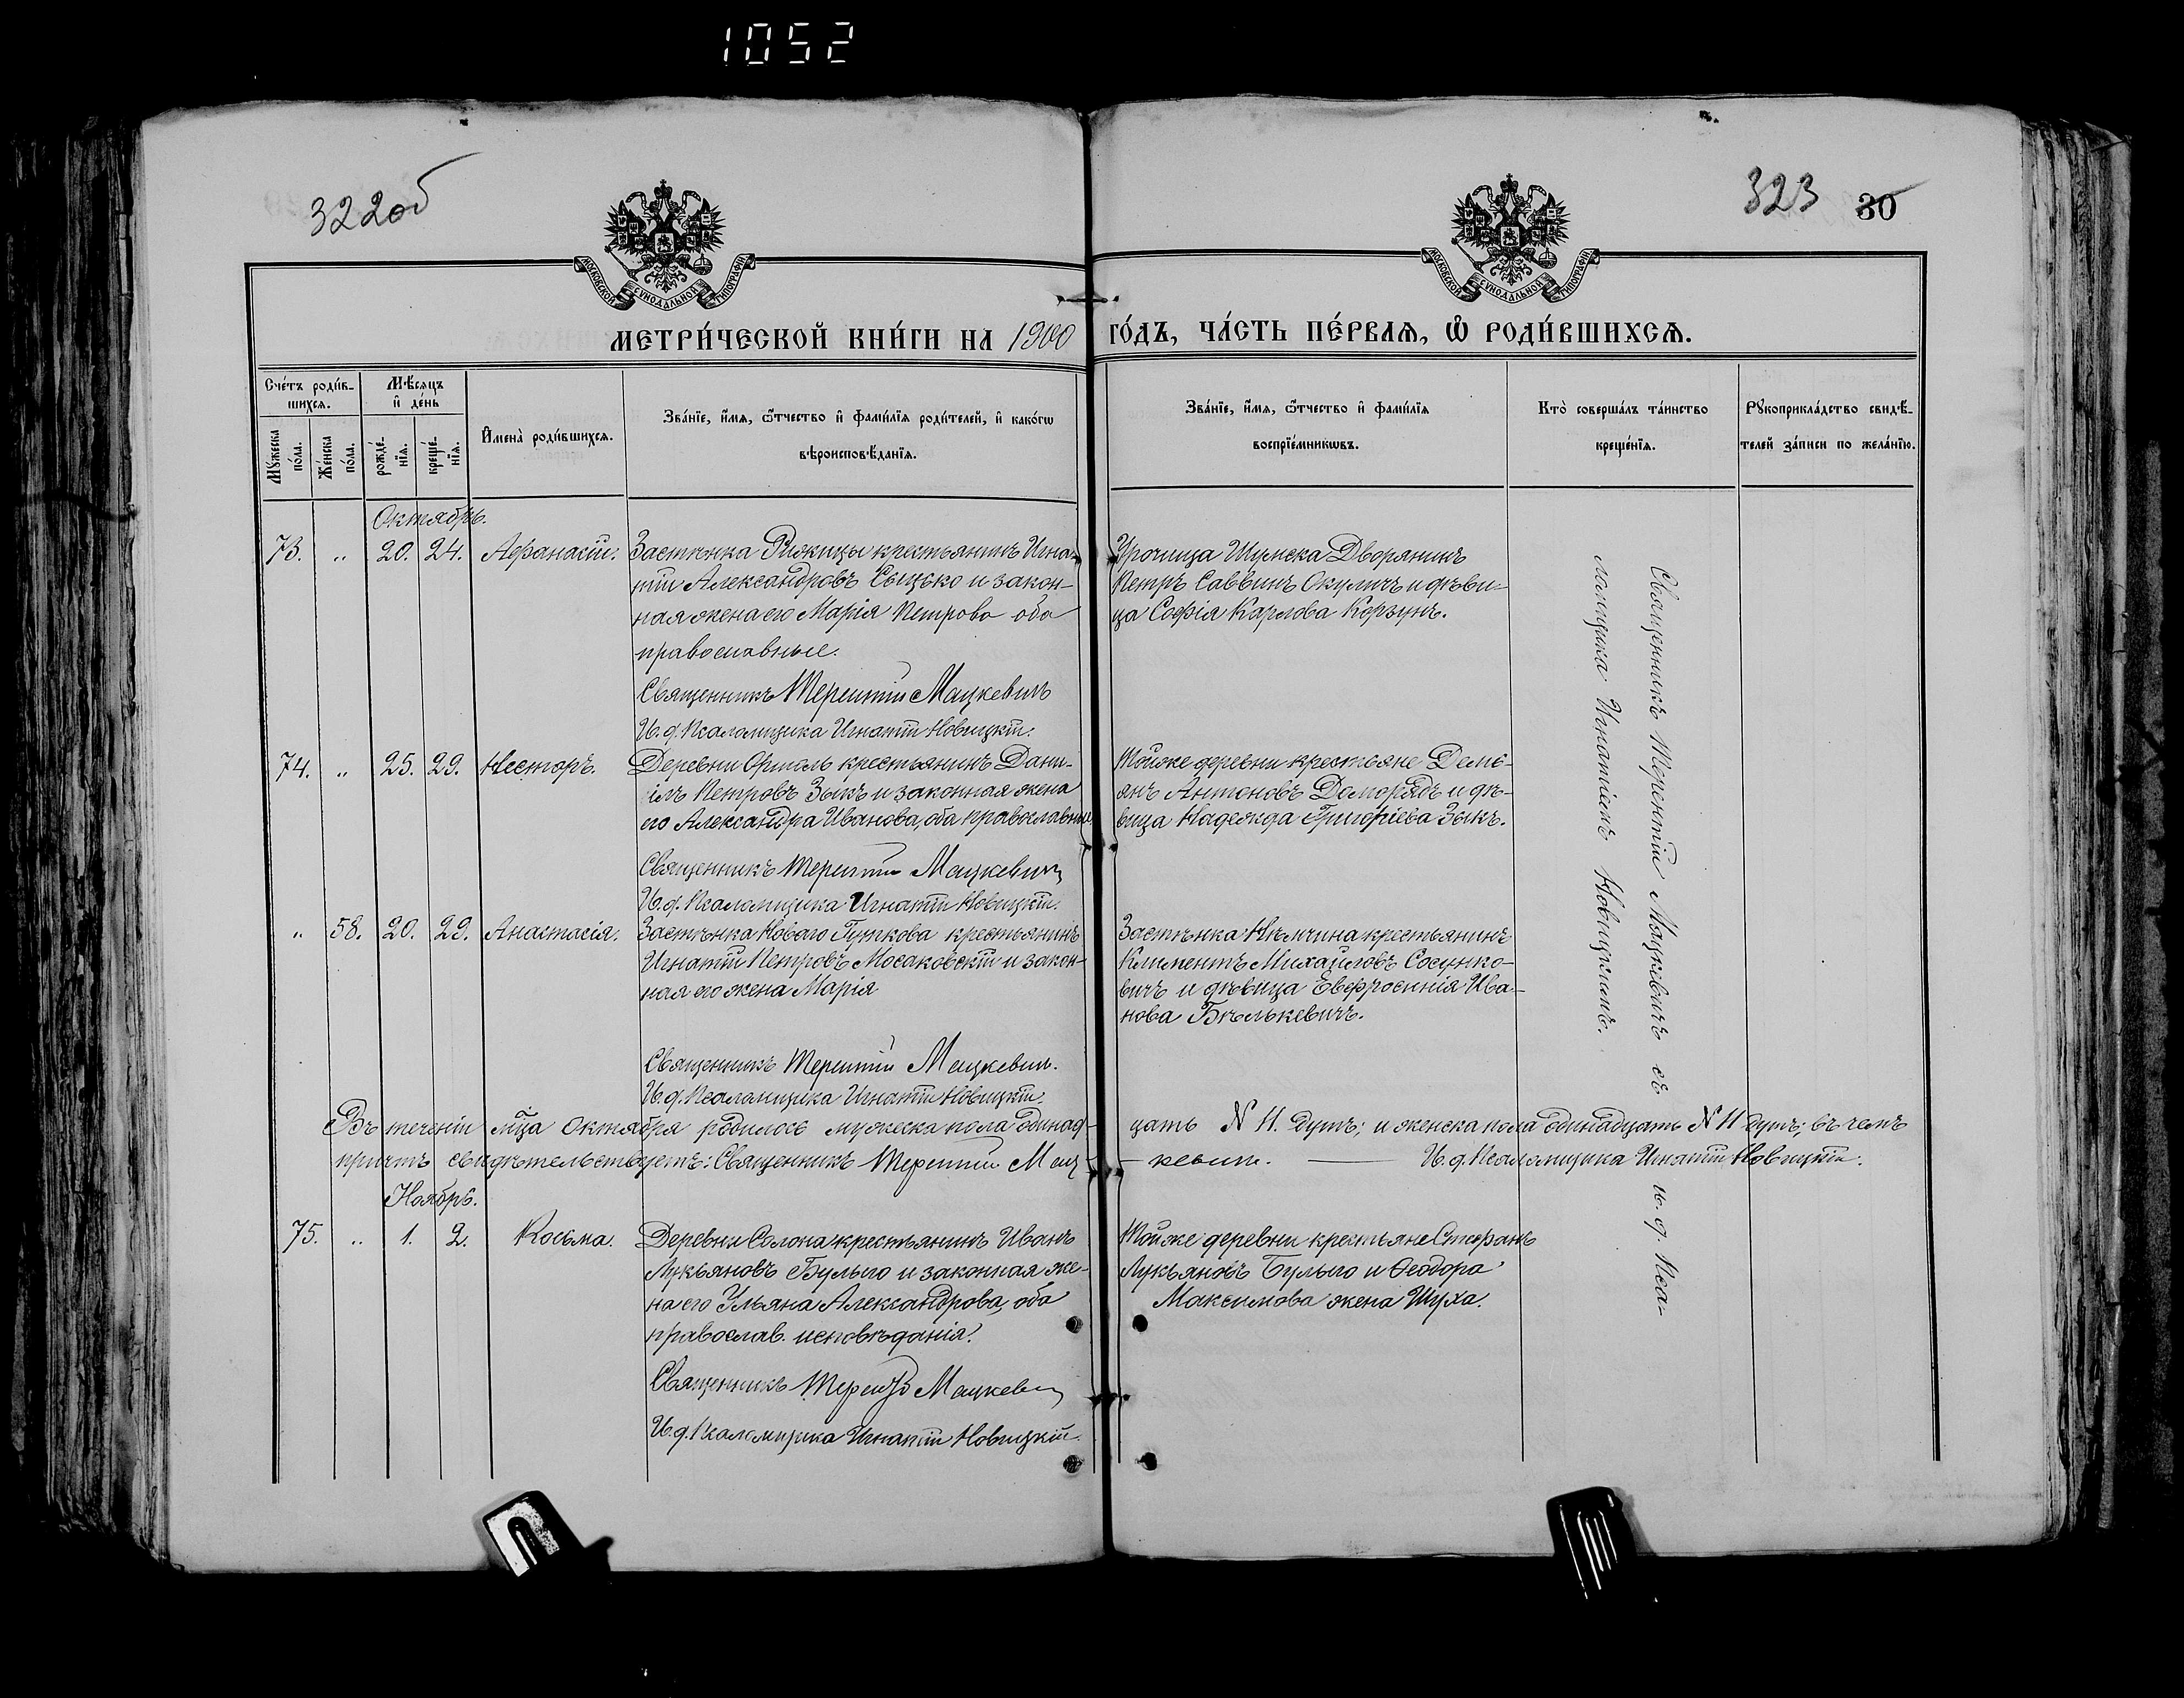 1052
322об
323 30
МОСКОВСКОЙ СѴНОДАЛЬНОЙ ТИПОГРАФІИ
МОСКОВСКОЙ СѴНОДАЛЬНОЙ ТИПОГРАФІИ
МЕТРИ́ЧЕСКОЙ КНИ́ГИ НА 1900 ГО́ДЪ, ЧА́СТЬ ПЕ́РВАѦ, Ѡ҆ РОДИ́ВШИХСѦ.
Сче́тъ роди́в-
шихсѧ.
Мꙋ́жеска по́ла.
Же́нска по́ла.
Мѣ́сяцъ
и҆ де́нь
рожде́-
нїѧ.
креще́-
нїѧ.
И҆мена̀ роди́вшихсѧ.
Зва́нїе, и҆́мѧ, ѻ҆́тчество и҆ фами́лїѧ роди́телей, и҆ како́гѡ
вѣроисповѣ́данїѧ.
Зва́нїе, и҆́мѧ, ѻ҆́тчество и҆ фами́лїѧ
воспрїе́мникѡвъ.
Кто̀ соверша́лъ та́инство
креще́нїѧ.
Рꙋкоприкла́дство свидѣ́-
телей за́писи по жела́нїю.
Октябрь.
73. „ 20. 24. Афанасій.
Застѣнка крестьянинъ Игна-
тій Александровъ Сыцько и закон-
ная жена его Марія Петрова оба
православные.
Священникъ Терентій Мацкевичъ
И.д. Псаломщика Игнатій Новицкій.
Урочища Шумска Дворянинъ
Петръ Саввинъ Окуличъ и дѣви-
ца Софія Карлова Корзунъ.
74. „ 25. 29. Несторъ.
Деревни крестьянинъ Дани-
илъ Петровъ Зыкъ и законная жена
его Александра Иванова, оба православные
Священникъ Терентій Мацкевичъ
И.д. Псаломщика Игнатій Новицкій.
Тойже деревни крестьяне Демь-
янъ Антоновъ Доморядъ и дѣ-
вица Надежда Григоріева Зыкъ.
„ 58. 20. 29. Анастасія.
Застѣнка Новаго Гуткова крестьянинъ
Игнатій Петровъ Мосаковскій и закон-
ная его жена Марія
Священникъ Терентій Мацкевичъ.
И.д. Псаломщика Игнатій Новицкій.
Застѣнка Нѣмчина крестьянинъ
Климентъ Михайловъ Сосунко-
вичъ и дѣвица Евфросинія Ива-
нова Бѣлькевичъ.
Въ теченіи м͠ца Октября родилось мужеска пола одинад-
цать № 11. душъ; и женска пола одинадцать № 11 душъ; въ чемъ
причтъ свидѣтельствуетъ: Священникъ Терентій Мац-
кевичъ. — И.д. Псаломщика Игнатій Новицкій.
Ноябрь.
75. „ 1. 2. Косьма.
Деревни Солона крестьянинъ Иванъ
Лукьяновъ Булыго и законная же-
на его Ульяна Александрова, оба
православ. исповѣданія.
Священникъ Терентій Мацкевичъ
И.д. Псаломщика Игнатій Новицкій.
Тойже деревни крестьяне Стефанъ
Лукьяновъ Булыго и Ѳеодора
Максимова жена Шуха.
Священникъ Терентій Мацкевичъ съ и. д. Пса-
ломщика Игнатіемъ Новицкимъ.